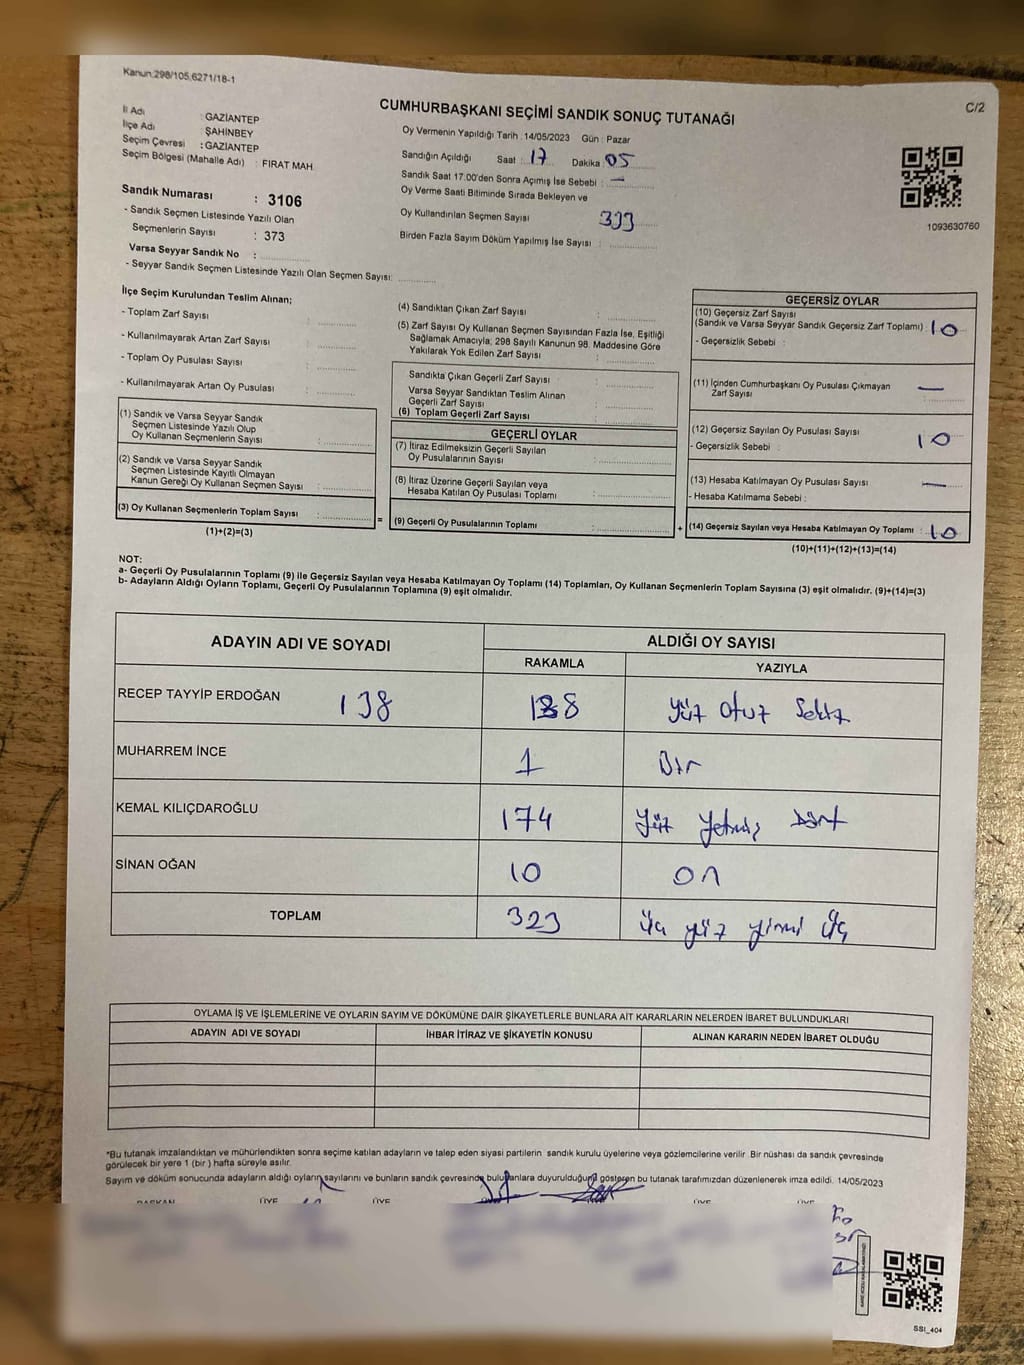 Kanun:298/105,6271/18-1
C/2
CUMHURBAŞKANI SEÇİMİ SANDIK SONUÇ TUTANAĞI
İl Adı : GAZİANTEP
İlçe Adı : ŞAHİNBEY
Seçim Çevresi : GAZİANTEP
Seçim Bölgesi (Mahalle Adı) : FIRAT MAH
Sandık Numarası : 3106
- Sandık Seçmen Listesinde Yazılı Olan
Seçmenlerin Sayısı : 373
Varsa Seyyar Sandık No :
- Seyyar Sandık Seçmen Listesinde Yazılı Olan Seçmen Sayısı:
Oy Vermenin Yapıldığı Tarih : 14/05/2023 Gün : Pazar
Sandığın Açıldığı Saat : 17 Dakika 05
Sandık Saat 17.00'den Sonra Açımış İse Sebebi : —
Oy Verme Saati Bitiminde Sırada Bekleyen ve
Oy Kullandırılan Seçmen Sayısı 333
Birden Fazla Sayım Döküm Yapılmış İse Sayısı :
1093630760
İlçe Seçim Kurulundan Teslim Alınan;
- Toplam Zarf Sayısı :
- Kullanılmayarak Artan Zarf Sayısı :
- Toplam Oy Pusulası Sayısı :
- Kullanılmayarak Artan Oy Pusulası :
(1) Sandık ve Varsa Seyyar Sandık
Seçmen Listesinde Yazılı Olup
Oy Kullanan Seçmenlerin Sayısı :
(2) Sandık ve Varsa Seyyar Sandık
Seçmen Listesinde Kayıtlı Olmayan
Kanun Gereği Oy Kullanan Seçmen Sayısı :
(3) Oy Kullanan Seçmenlerin Toplam Sayısı :
(1)+(2)=(3)
=
(4) Sandıktan Çıkan Zarf Sayısı :
(5) Zarf Sayısı Oy Kullanan Seçmen Sayısından Fazla İse, Eşitliği
Sağlamak Amacıyla; 298 Sayılı Kanunun 98. Maddesine Göre
Yakılarak Yok Edilen Zarf Sayısı :
Sandıkta Çıkan Geçerli Zarf Sayısı :
Varsa Seyyar Sandıktan Teslim Alınan
Geçerli Zarf Sayısı :
(6) Toplam Geçerli Zarf Sayısı
GEÇERLİ OYLAR
(7) İtiraz Edilmeksizin Geçerli Sayılan
Oy Pusulalarının Sayısı :
(8) İtiraz Üzerine Geçerli Sayılan veya
Hesaba Katılan Oy Pusulası Toplamı :
(9) Geçerli Oy Pusulalarının Toplamı :
+
GEÇERSİZ OYLAR
(10) Geçersiz Zarf Sayısı
(Sandık ve Varsa Seyyar Sandık Geçersiz Zarf Toplamı) : 10
- Geçersizlik Sebebi :
(11) İçinden Cumhurbaşkanı Oy Pusulası Çıkmayan
Zarf Sayısı : —
(12) Geçersiz Sayılan Oy Pusulası Sayısı : 10
- Geçersizlik Sebebi :
(13) Hesaba Katılmayan Oy Pusulası Sayısı : —
- Hesaba Katılmama Sebebi :
(14) Geçersiz Sayılan veya Hesaba Katılmayan Oy Toplamı : 10
(10)+(11)+(12)+(13)=(14)
NOT:
a- Geçerli Oy Pusulalarının Toplamı (9) ile Geçersiz Sayılan veya Hesaba Katılmayan Oy Toplamı (14) Toplamları, Oy Kullanan Seçmenlerin Toplam Sayısına (3) eşit olmalıdır. (9)+(14)=(3)
b- Adayların Aldığı Oyların Toplamı, Geçerli Oy Pusulalarının Toplamına (9) eşit olmalıdır.
ADAYIN ADI VE SOYADI ALDIĞI OY SAYISI
RAKAMLA YAZIYLA
RECEP TAYYİP ERDOĞAN 138 138 Yüz otuz Sekiz
MUHARREM İNCE 1 Bir
KEMAL KILIÇDAROĞLU 174 Yüz Yetmiş Dört
SİNAN OĞAN 10 On
TOPLAM 323 Üç yüz yirmi Üç
OYLAMA İŞ VE İŞLEMLERİNE VE OYLARIN SAYIM VE DÖKÜMÜNE DAİR ŞİKAYETLERLE BUNLARA AİT KARARLARIN NELERDEN İBARET BULUNDUKLARI
ADAYIN ADI VE SOYADI İHBAR İTİRAZ VE ŞİKAYETİN KONUSU ALINAN KARARIN NEDEN İBARET OLDUĞU
*Bu tutanak imzalandıktan ve mühürlendikten sonra seçime katılan adayların ve talep eden siyasi partilerin sandık kurulu üyelerine veya gözlemcilerine verilir. Bir nüshası da sandık çevresinde
görülecek bir yere 1 (bir ) hafta süreyle asılır.
Sayım ve döküm sonucunda adayların aldığı oyların sayılarını ve bunların sandık çevresinde bulunanlara duyurulduğunu gösteren bu tutanak tarafımızdan düzenlenerek imza edildi. 14/05/2023
BAŞKAN ÜYE ÜYE ÜYE ÜYE
SSI_404